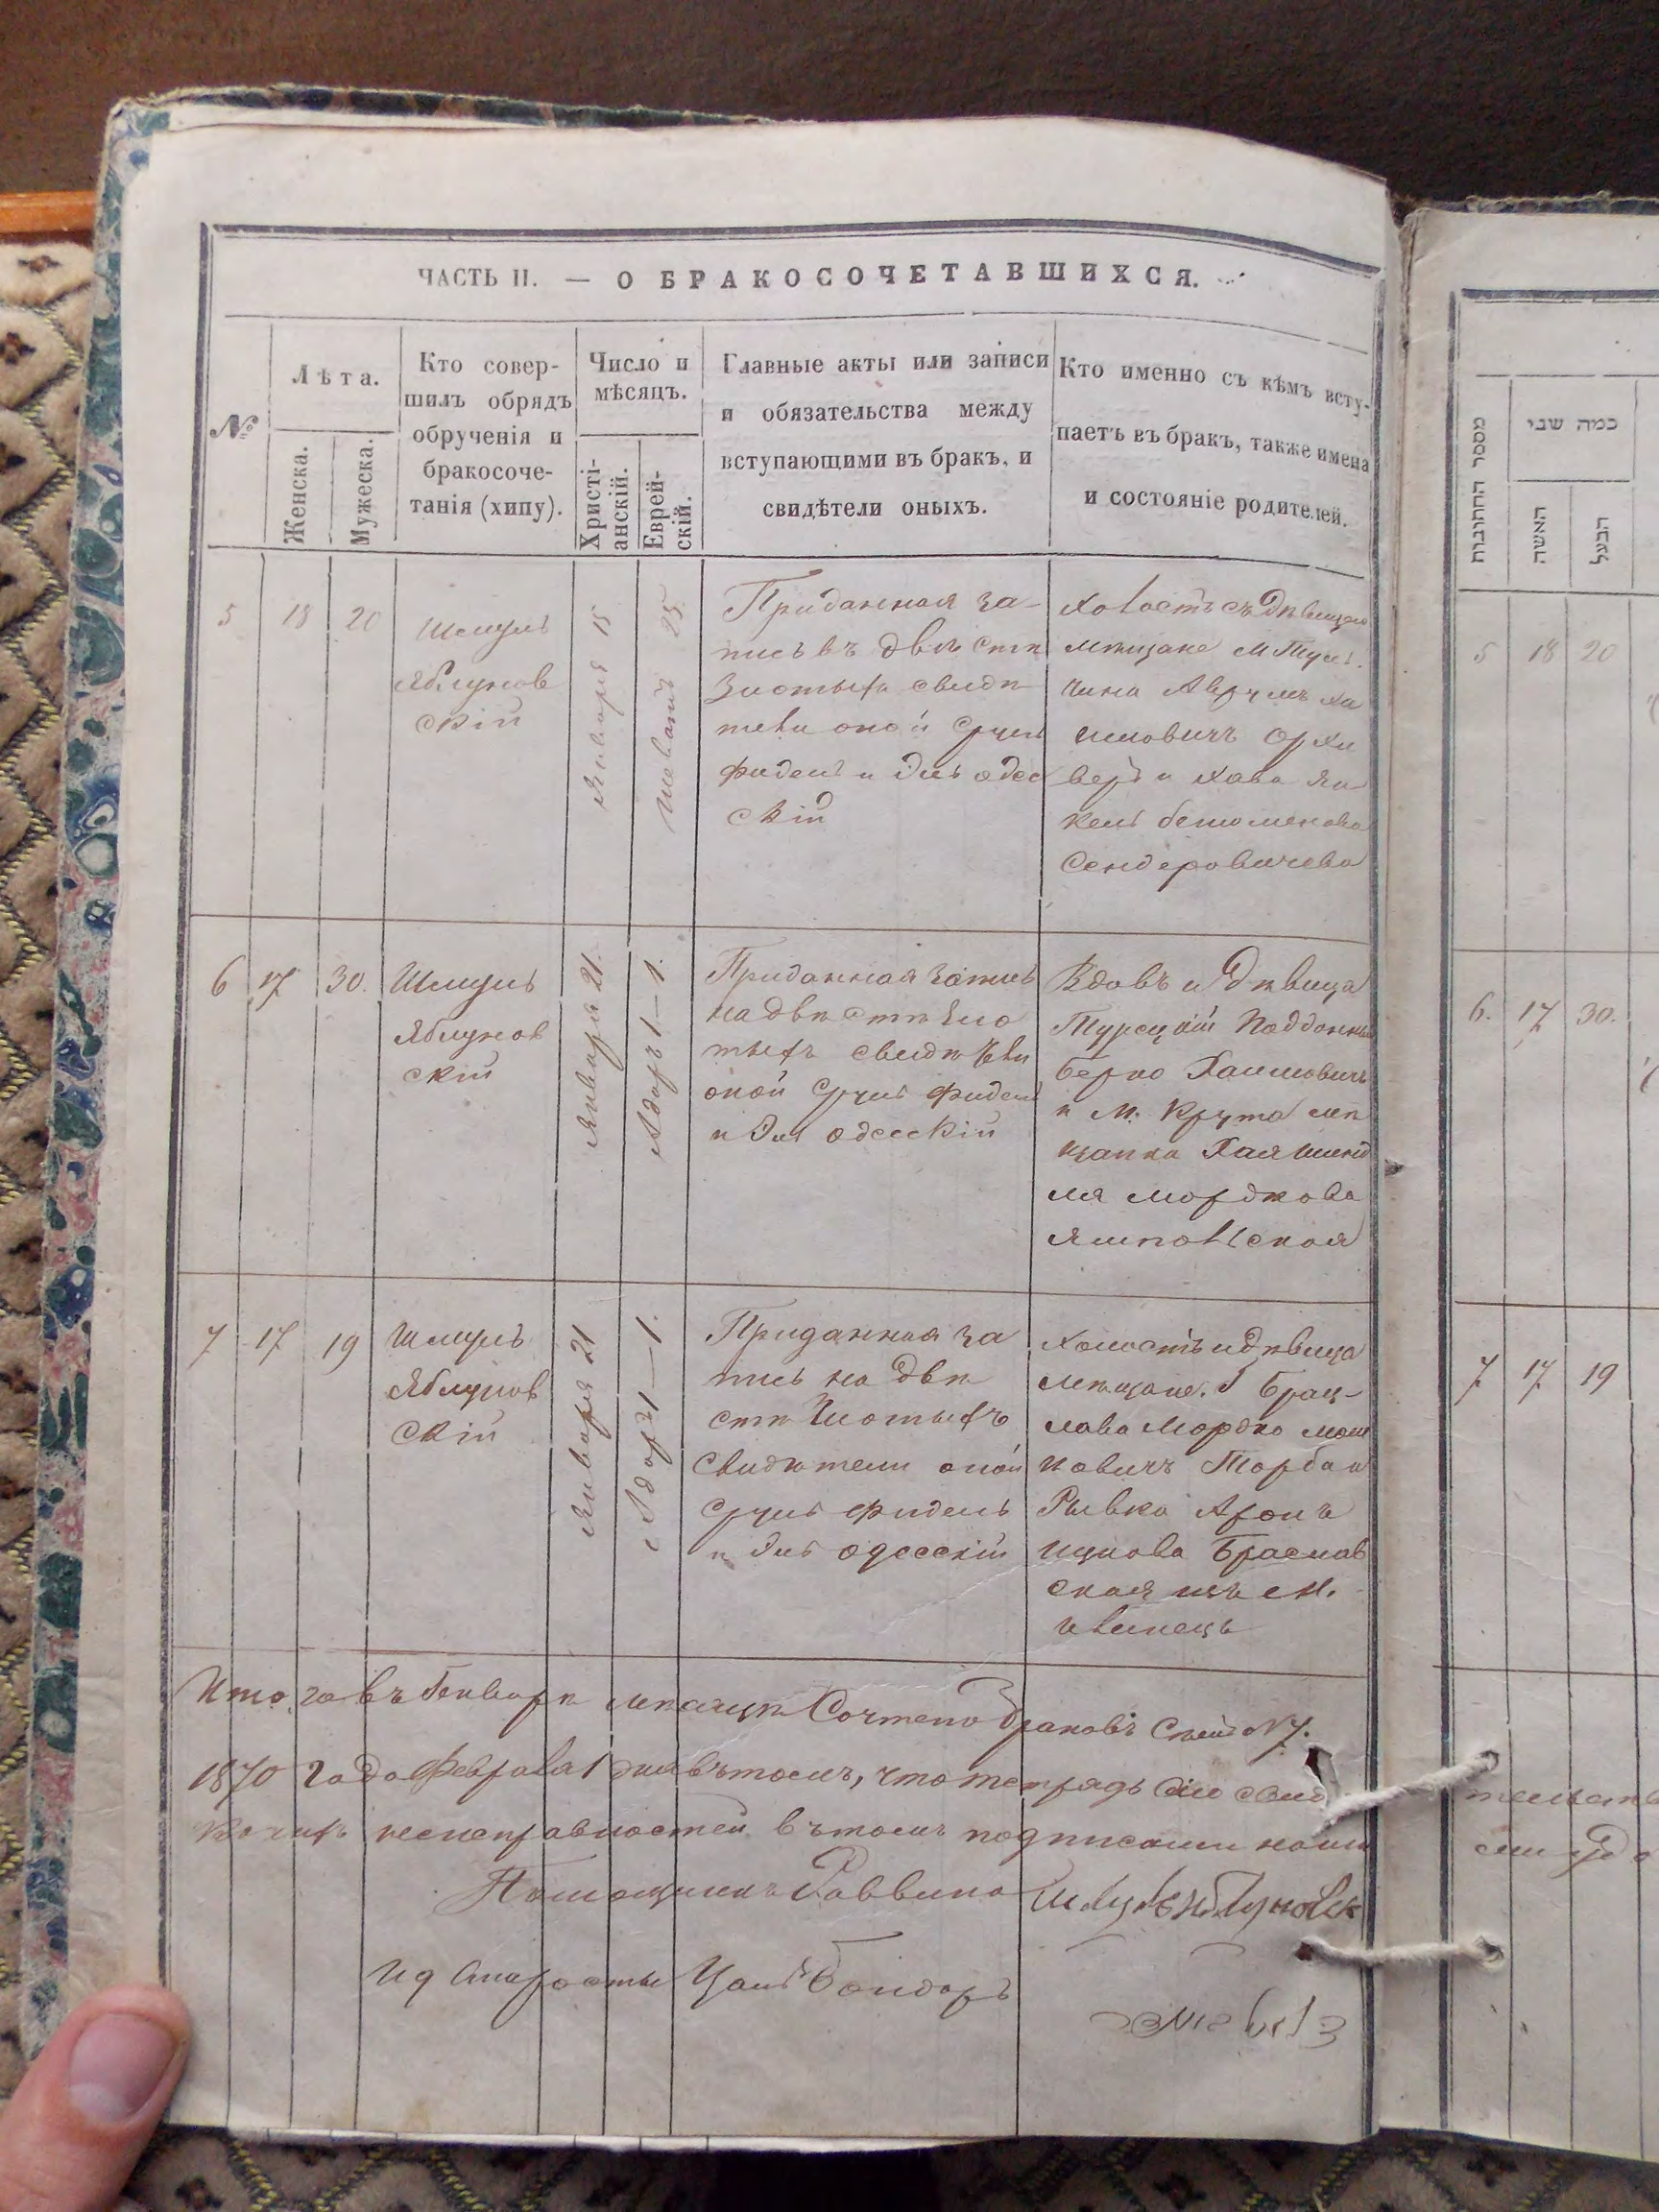 ЧАСТЬ II. — О БРАКОСОЧЕТАВШИХСЯ.
№
Лѣта.
Женска.
Мужеска.
Кто совер-
шилъ обрядъ
обрученія и
бракосоче-
танія (хипу).
Число и
мѣсяцъ.
Христі-
анскій.
Еврей-
скій.
Главные акты или записи
и обязательства между
вступающими въ бракъ, и
свидѣтели оныхъ.
Кто именно съ кѣмъ всту-
паетъ въ бракъ, также имена
и состояніе родителей.
5
18
20
Шмуль
Яблунов
скій
Января 15
25
Приданная за-
пись въ двѣ стѣ
злотыхъ свидѣ
тели оной Сруль
Фидель и Эль одес
скій
Холостъ съ дѣвицею
мѣщане М Туль.
чина Аврумъ Ха
имовичъ
и Хава Ян
кель
Сендеровичева
6
17
30.
Шмуль
Яблунов
скій
Января 21.
Адоръ 1 — 1.
Приданная запись
на двѣ стѣ зло
тыхъ свидѣтели
оной Сруль Фидель
и Эль одесскій
Вдовъ и дѣвица
Турецкій Подданный
Берко Хаимовичъ
и М. Крута мѣ
щанка Хая Шенд
ля Мордкова
Ямпольская
7
17
19
Шмуль
Яблунов
скій
Января 21
Адоръ 1 — 1.
Приданная за
пись на двѣ
стѣ злотыхъ
свидѣтели оной
Сруль Фидель
и Эль одесскій
Холостъ и дѣвица
мѣщане. г Брац-
лава Мордко Мош
ковичъ Торбан
Рывка Аронъ
Ицкова Браслав
ская изъ м.
Итого въ Генварѣ мѣсяцѣ Сочтено браковъ Семь N 7.
1870 Года Февраля 1 дня въ томъ, что тетрадь сію свид
неисправностей въ томъ подписами наши
Помощникъ Раввина Шмуль Яблуновск
И д Старосты Бондоръ
מספר החתונות
כמה שני
האשה
הבעל
5
18
20
6.
17
30.
7
17
19